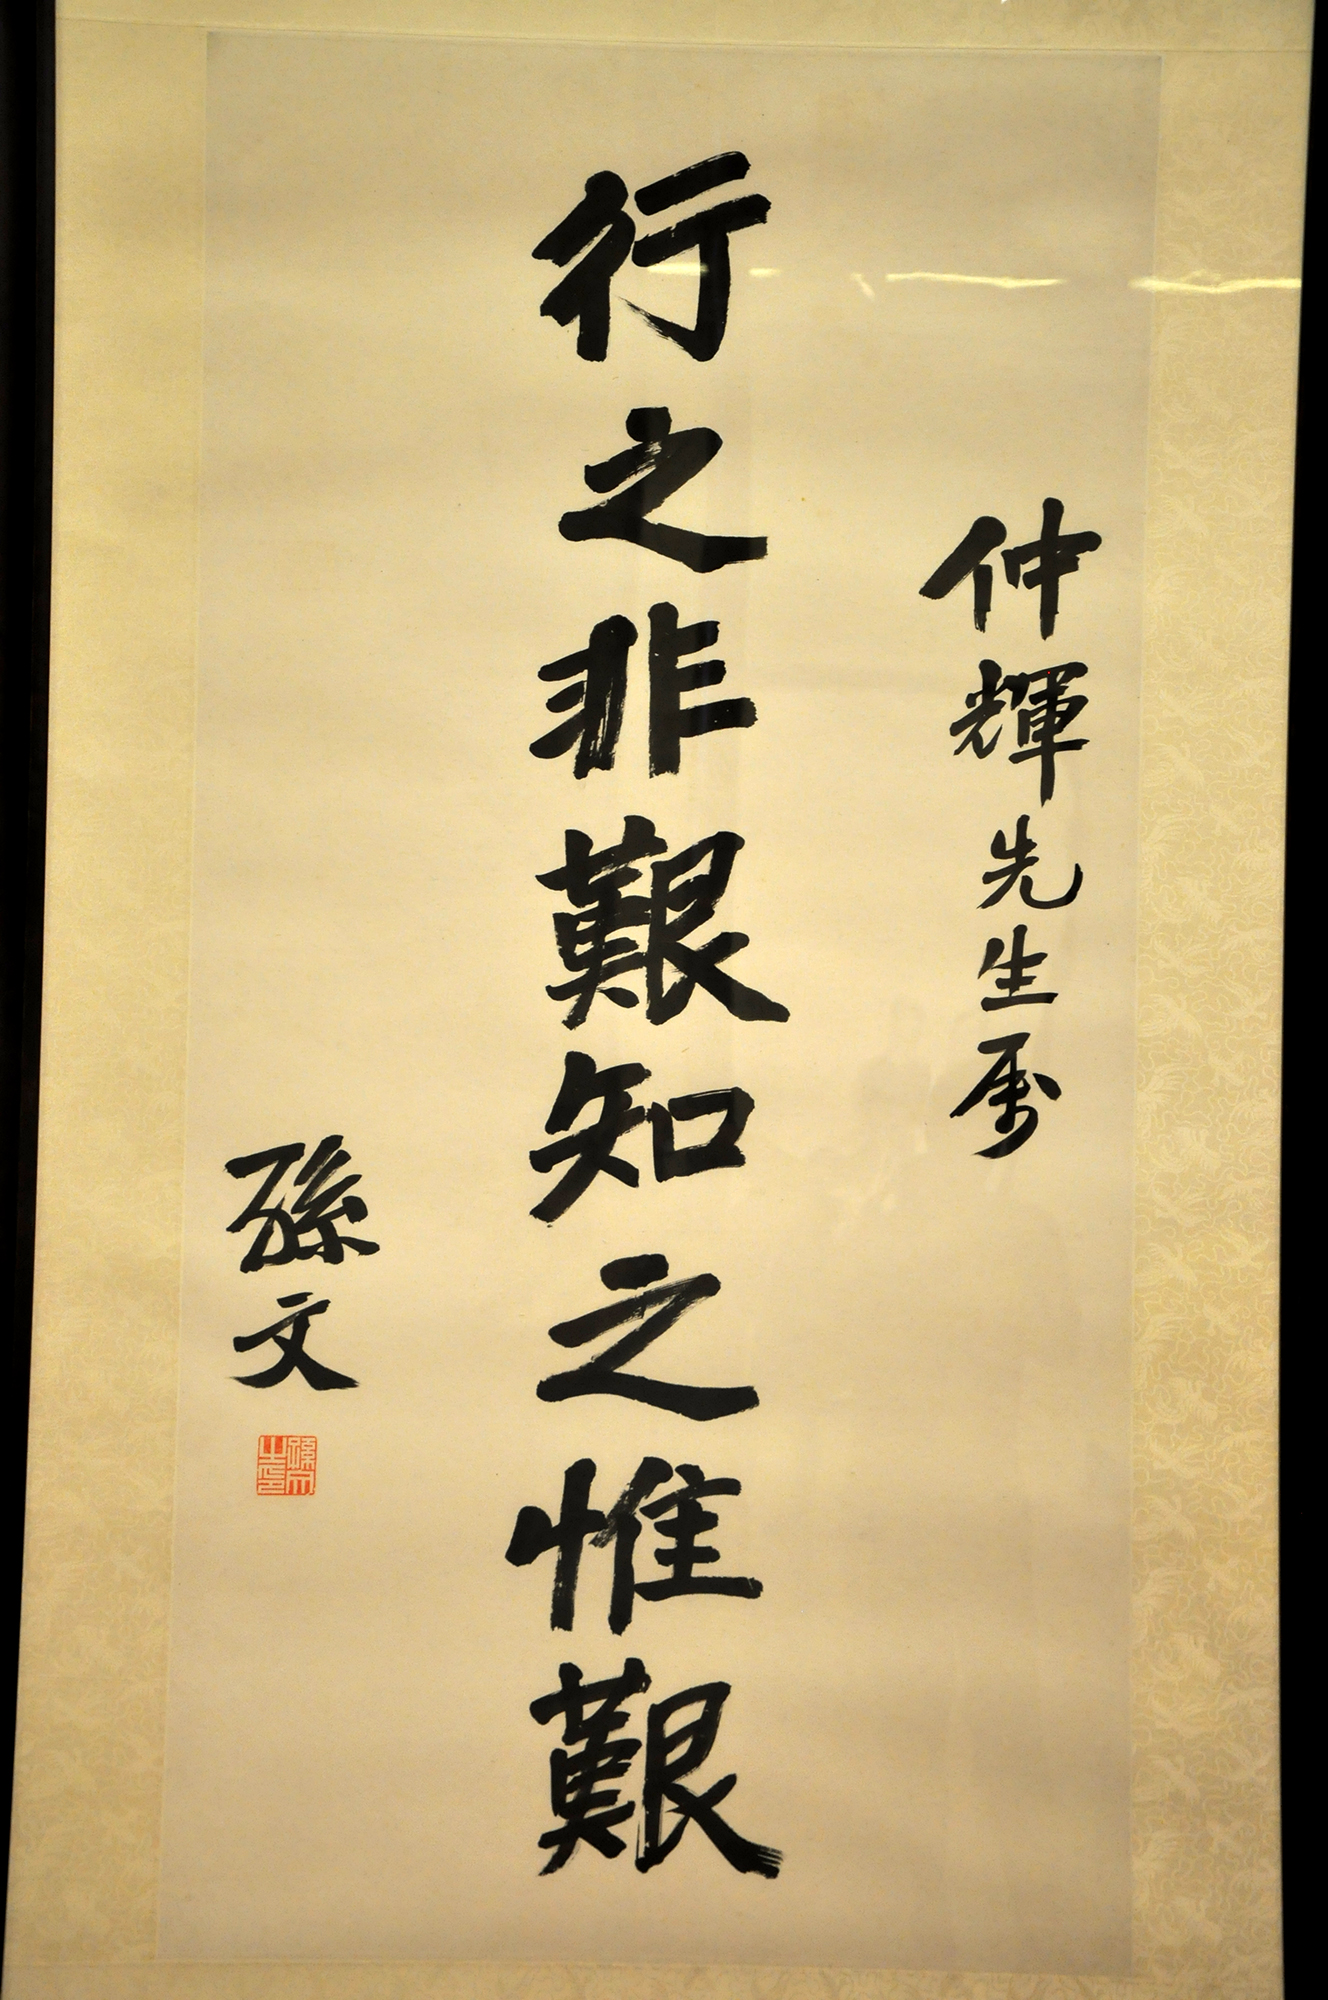 仲輝先生属
行之非艱知之惟艱
孫文
孫文之印